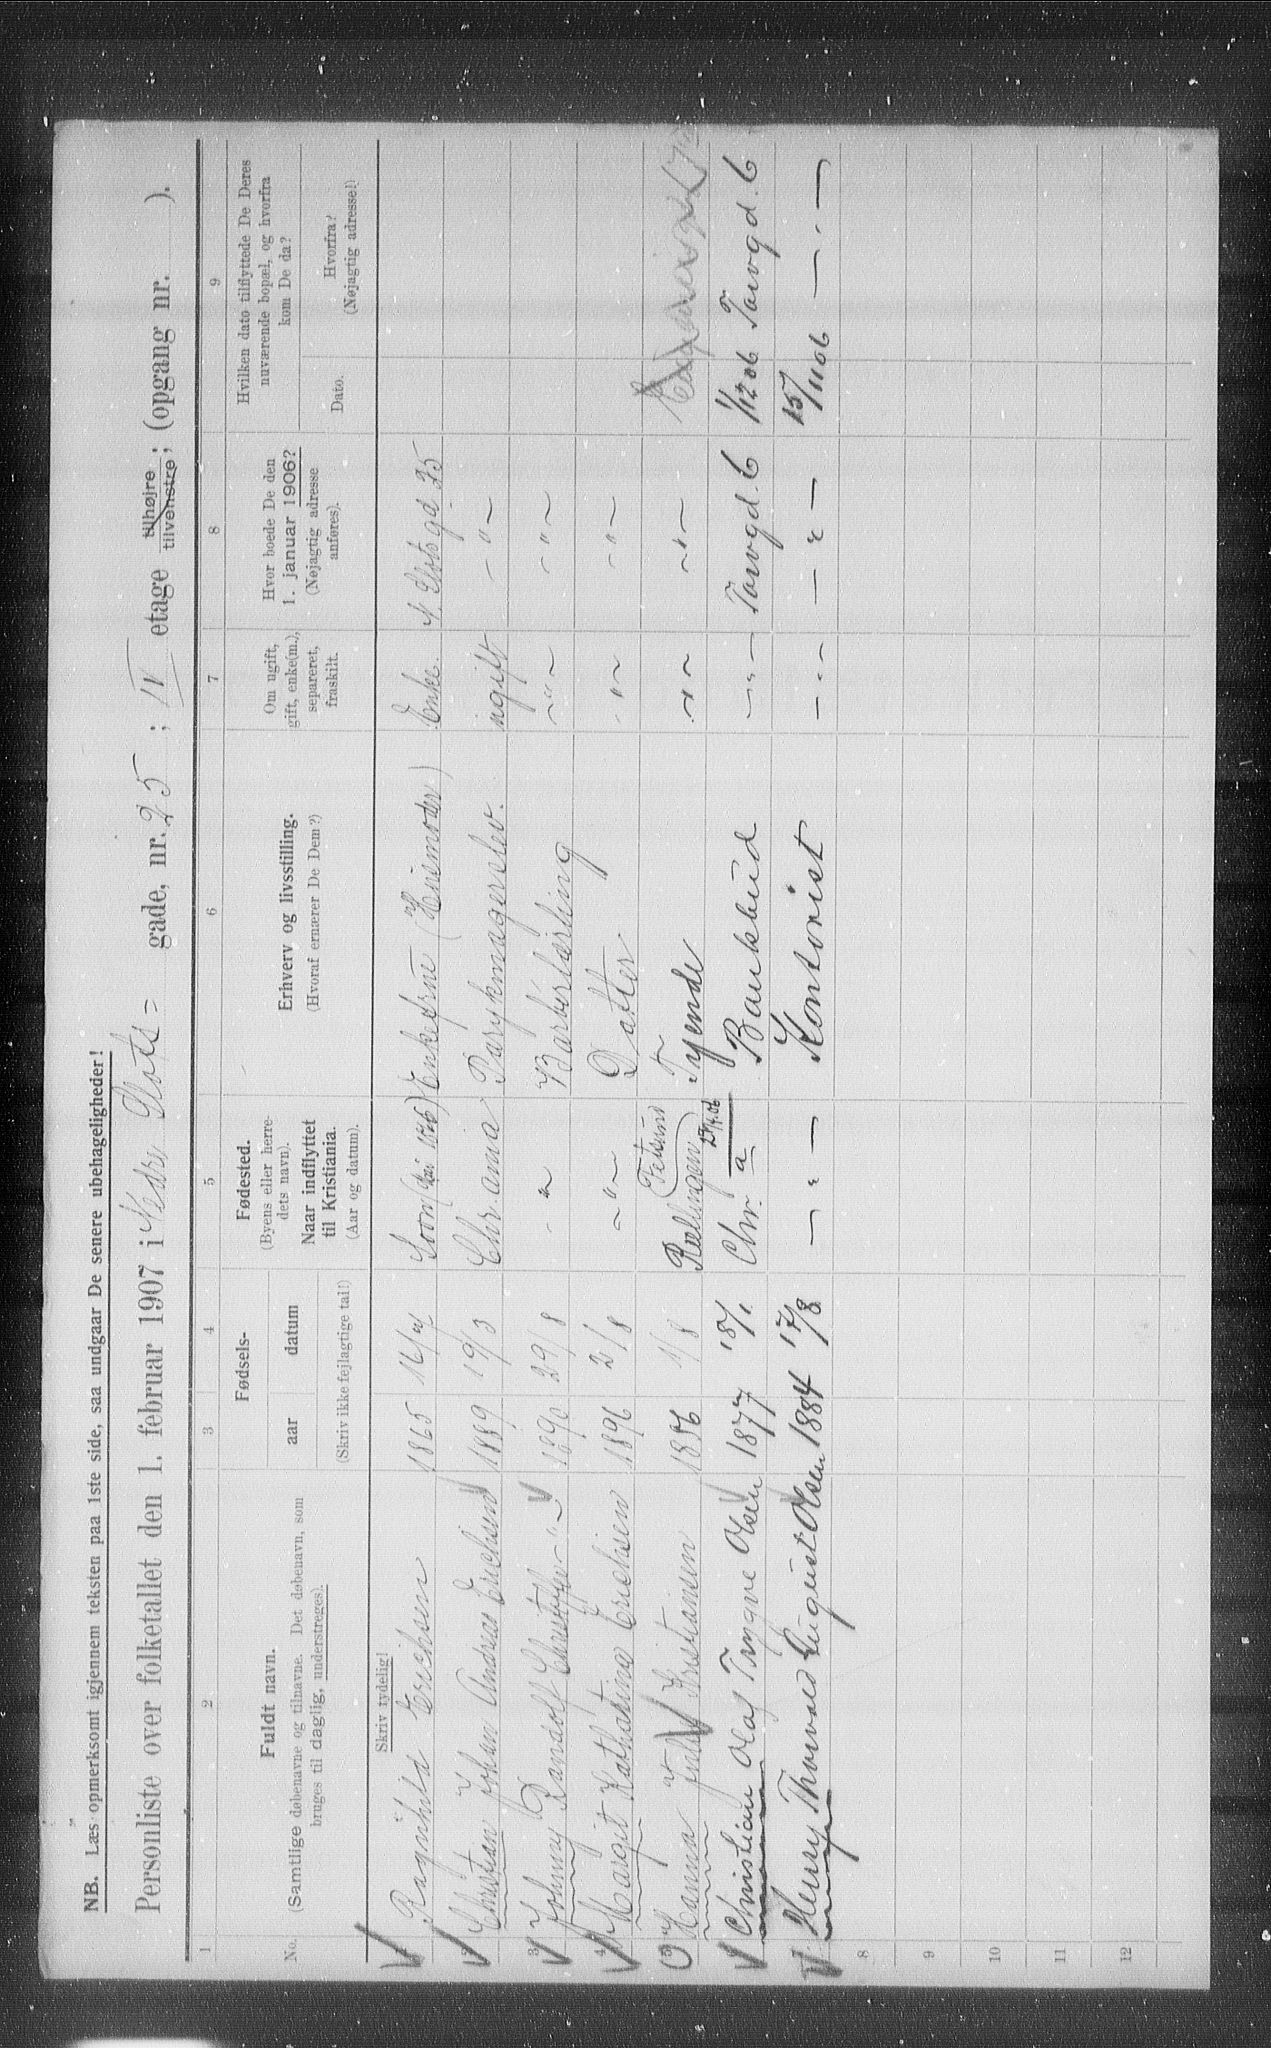 NB. Læs opmerksomt igjennem teksten paa 1ste side, saa undgaar De senere ubehageligheder!
Personliste over folketallet den 1. februar 1907 i Nedre Slots= gade, nr. 25; IV etage tilhøjre tilvenstre; (opgang nr. ).
1 2 3 4 5 6 7 8 9
No.
Fuldt navn.
(Samtlige døbenavne og tilnavne. Det døbenavn, som
bruges til daglig, understreges).
Fødsels-
aar datum
(Skriv ikke fejlagtige tal!)
Fødested.
(Byens eller herre-
dets navn).
Naar indflyttet
til Kristiania.
(Aar og datum).
Erhverv og livsstilling.
(Hvoraf ernærer De Dem?)
Om ugift,
gift, enke(m.),
separeret,
fraskilt.
Hvor boede De den
1. januar 1906?
(Nøjagtig adresse
anføres).
Hvilken dato tilflyttede De Deres
nuværende bopæl, og hvorfra
kom De da?
Dato.
Hvorfra?
(Nøjagtig adresse!)
Skriv tydelig!
Ragnhild Erichsen 1865 Soon Enkefrue (Husmoder) Enke. N. Slotsgd 25
2 Christian Johan Andreas Erichsen 1889 19/3 Chr.ania Parykmagerelev. ugift — " —
3 Johnny Randolf Christopher — " — 1890 29/8 - " Barberlærling — " — — " —
4 Margit Katharina Erichsen 1896 2/8 — " — Datter - " — — " —
5 Hanna Julie Kristiansen 1886 1/8 Rællingen (Fetsund Tjende — " — — " —
Christian Olaf Trygve Olsen 1877 18/1 Chr. a Bankbud — " — Torvgd. 6 1/12 06 Torvgd. 6
7 Henry Thorvald August Olsen 1884 17/8 — " — Kontorist — " — — " — 15/11 06 — " —
8
9
10
11
12